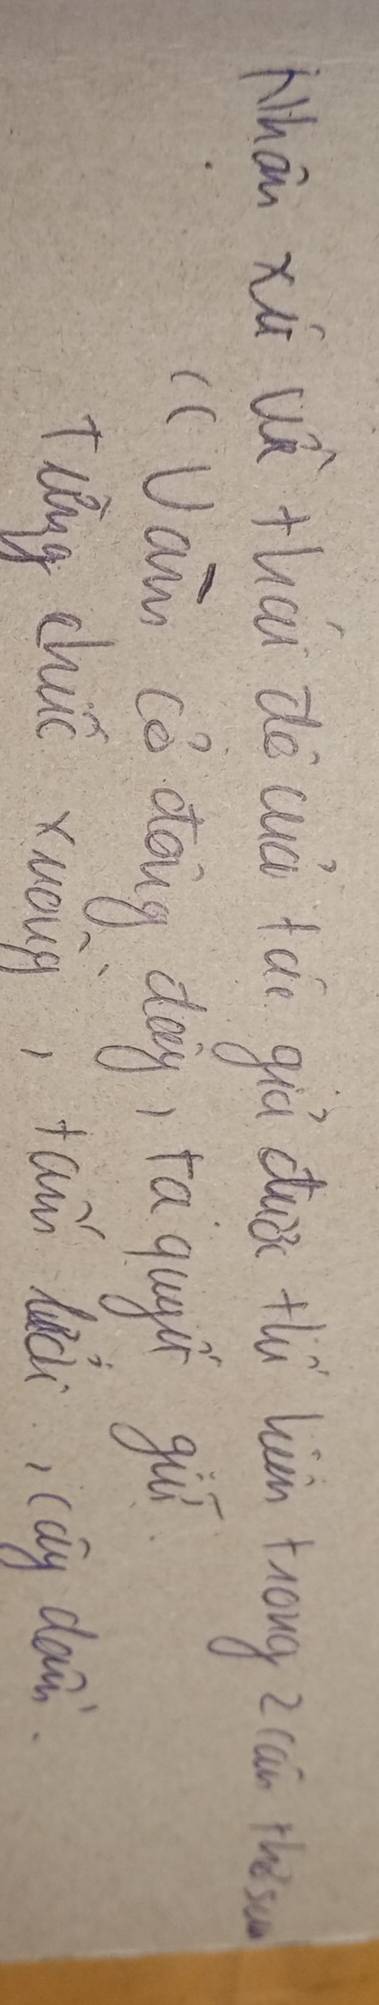 Nhận xét về thái độ của tác giả được thể hiện trong 2 câu thơ sau
"Vàm cỏ đông đây, ta quyết giữ
từng chiếc xuồng, tấm lưới, cây dầm.